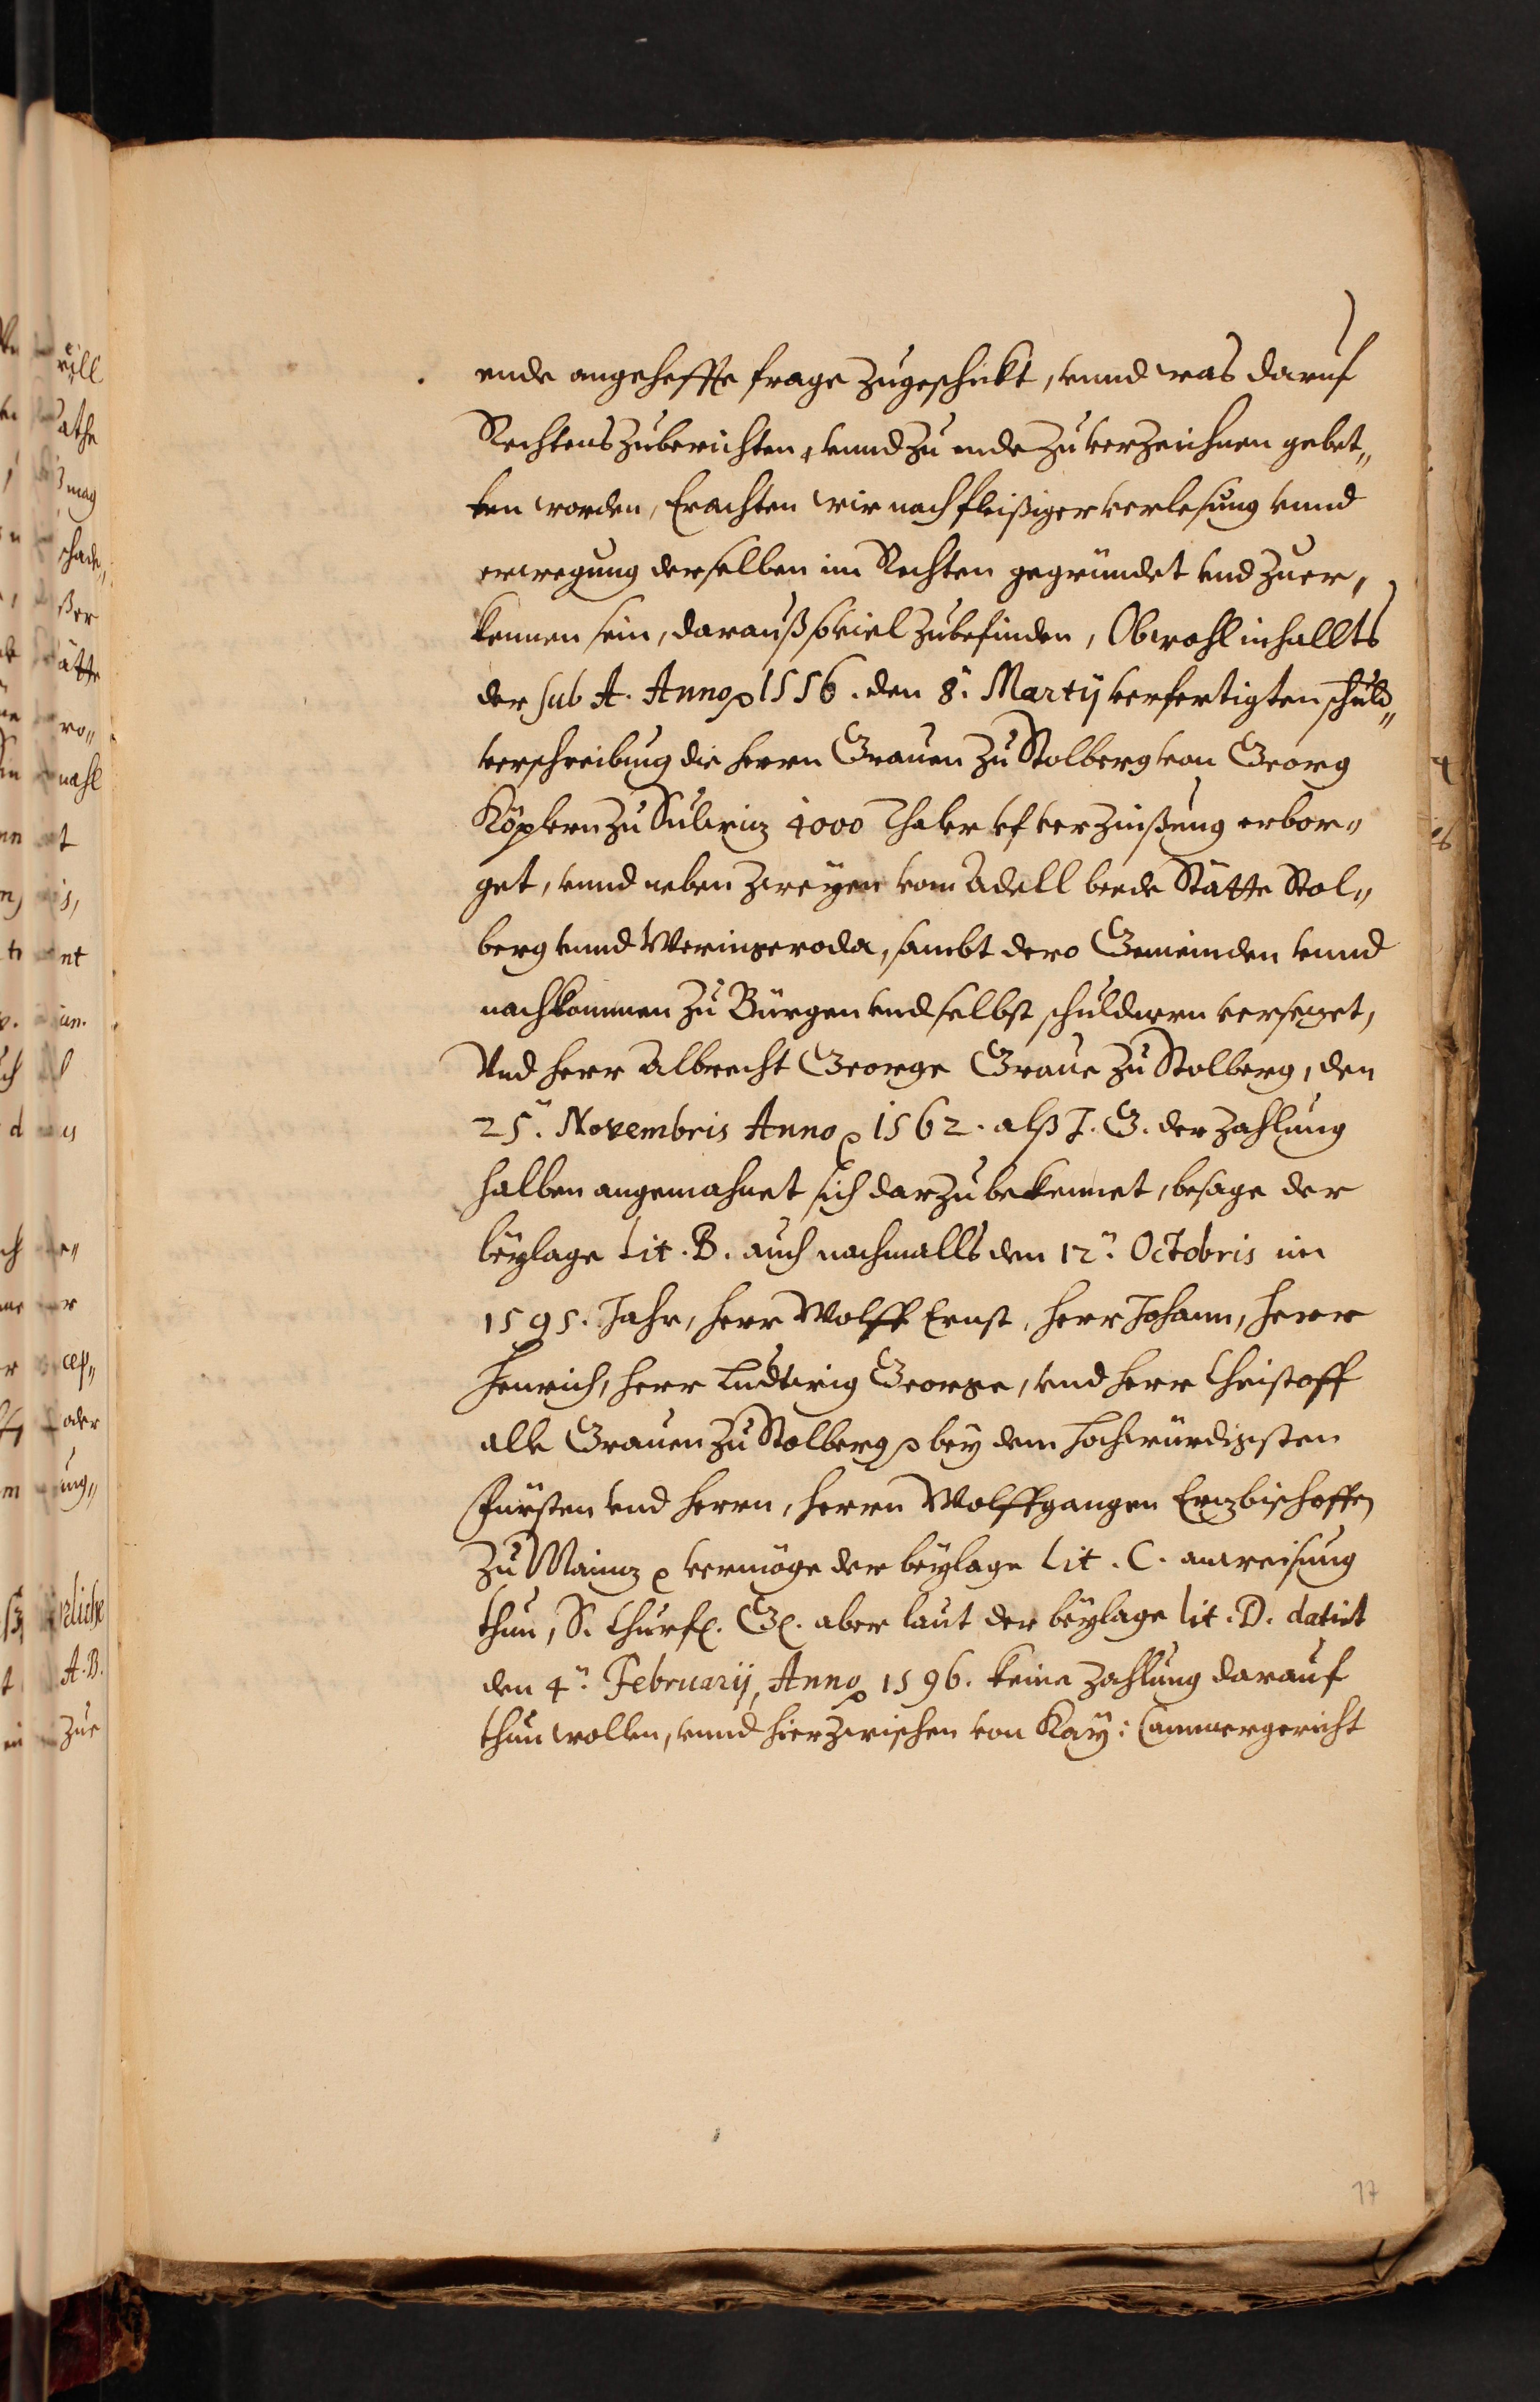 ende angeheffte frage zugeschickt, vnnd was daruf
Rechtens zuberichten, vnnd zu ende zuverzeichnen gebet„
ten worden, Erachten wir nach fleißiger verlesung vnnd
erwegung derselben im Rechten gegründet vnd zuer„
kennen sein, darauß soviel zubefinden, Obwohl inhallts
der sub A. Anno 1556. den 8. Martij verfertigten schuld„
verschreibung die herrn Grauen zu Stolberg von Georg
zu 4000 Thaler vf verzinßung erbor„
get, vnnd neben zweyen vom Adell beede Stätte Stol„
berg vnnd Weringeroda, sambt dero Gemeinden vnnd
nachkommen zu Bürgen vnd selbst schuldnern versetzet,
Vnd herr Albrecht George Graue zu Stolberg, den
25. Novembris Anno 1562. alß I. G. der zahlung
halben angemahnet sich darzu bekennet, besage der
beylage Lit. B. auch nachmalls den 12. Octobris im
1595. Jahr, herr Wolff Ernst, herr Johann, herr
Henrich, herr Ludtwig George, vnd herr Christoff
alle Grauen zu Stolberg bey dem hochwürdigsten
Fürsten vnd herrn, herrn Wolffgangen Ertzbischoffen
zu Maintz vermöge der beylage Lit. C. anweisung
thun, S. Churf. G. aber laut der beylage lit. D. datirt
den 4. Februarij, Anno 1596. keine zahlung darauf
thun wollen, vnnd hierzwischen von Kay: Cammergericht
17